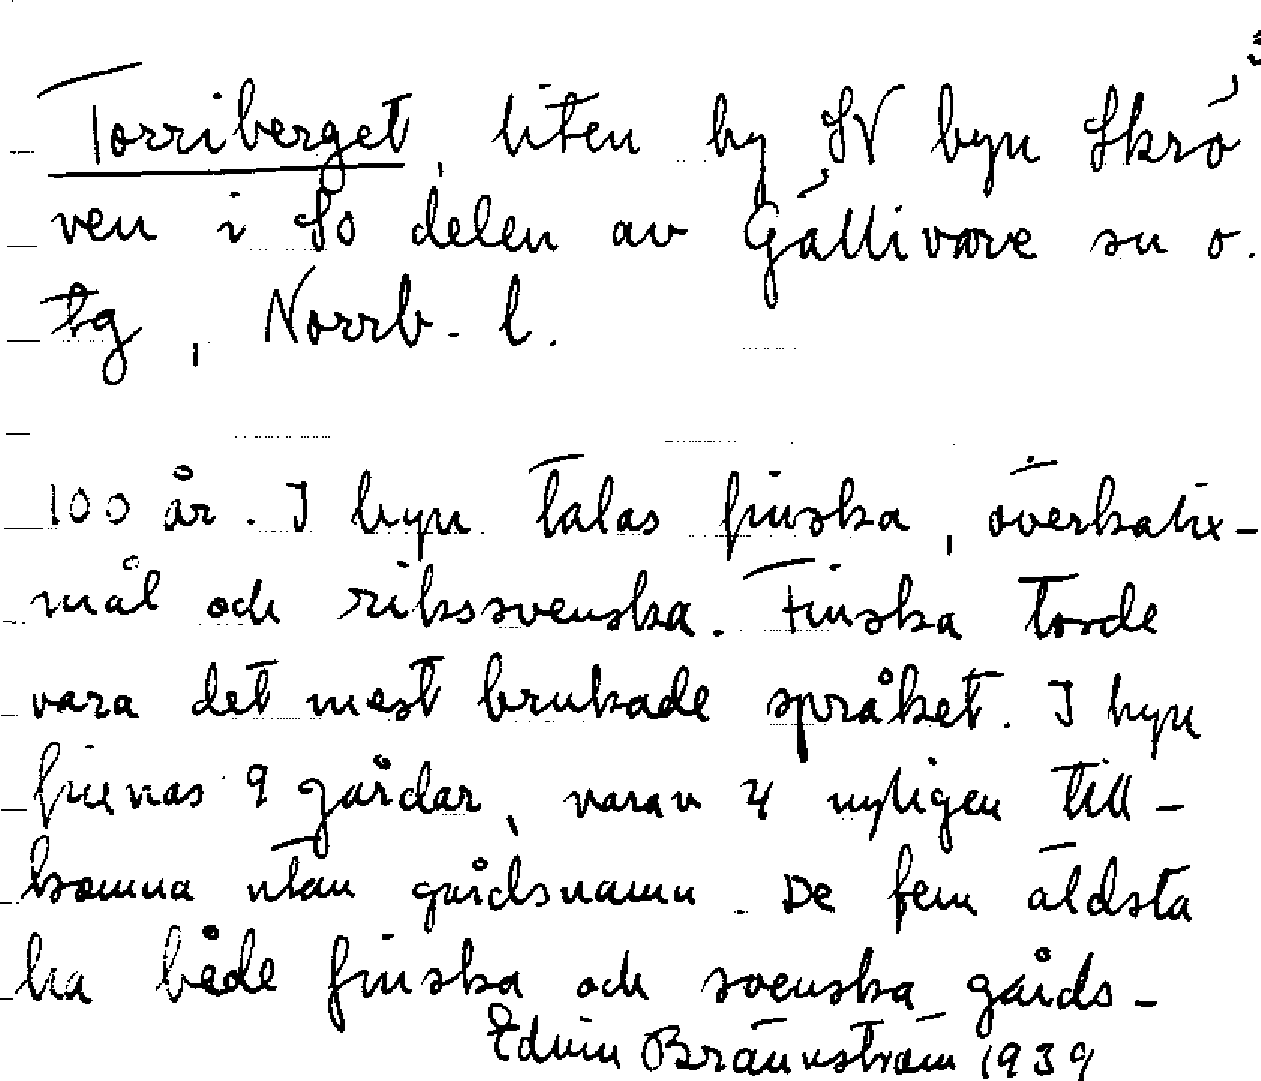 Torriberget, liten by SV byn Skrö
ven i SO delen av Gällivare sn o.
tg, Norrb. l.
100 år. I byn talas finska, överkalix-
mål och rikssvenska. Finska torde
vara det mest brukade språket. I byn
finnas 9 gårdar, varav 4 nyligen till-
komna utan gårdsnamn. De fem äldsta
ha både finska och svenska gårds-
Edvin Brännström 1939